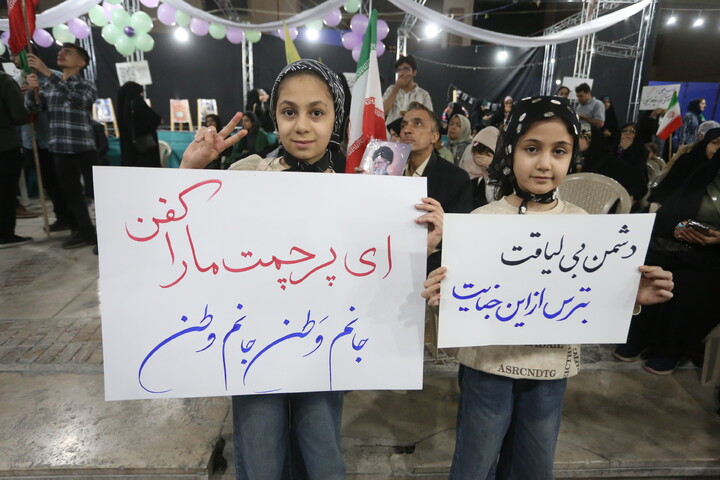 ای پرچمت ما را کفن
جانم وطن جانم وطن
دشمن بی لیاقت
بترس از این جنایت
ASRCNDTG